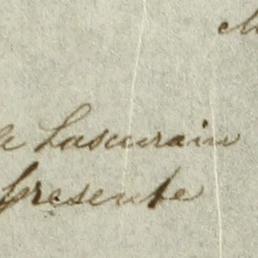 de Lascurain
Presente